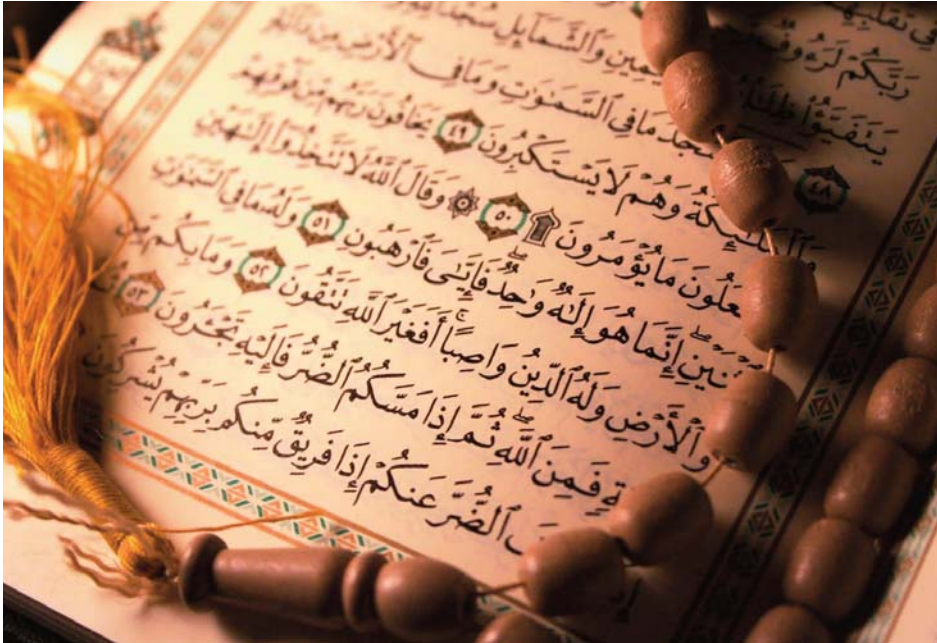 فِي تَقَلُّبِهِمْ
رَبَّكُمْ لَرَءُوفٌ
يَتَفَيَّؤُا۟ ظِلَـٰلُهُ يَمِينِ وَٱلشَّمَآئِلِ سُجَّدًا
٤٨ سْجُدُ مَا فِي ٱلسَّمَـٰوَٰتِ وَمَا فِي ٱلْأَرْضِ مِن دَآبَّةٍ
وَٱلْمَلَـٰٓئِكَةُ وَهُمْ لَا يَسْتَكْبِرُونَ ٤٩ يَخَافُونَ رَبَّهُم مِّن فَوْقِهِمْ
عَلُونَ مَا يُؤْمَرُونَ ۩ ٥٠ ۞ وَقَالَ ٱللَّهُ لَا تَتَّخِذُوٓا۟ إِلَـٰهَيْنِ
ثْنَيْنِ ۖ إِنَّمَا هُوَ إِلَـٰهٌ وَٰحِدٌ ۖ فَإِيَّـٰيَ فَٱرْهَبُونِ ٥١ وَلَهُۥ مَا فِي ٱلسَّمَـٰوَٰتِ
وَٱلْأَرْضِ وَلَهُ ٱلدِّينُ وَاصِبًا ۚ أَفَغَيْرَ ٱللَّهِ تَتَّقُونَ ٥٢ وَمَا بِكُم مِّن
ةٍ فَمِنَ ٱللَّهِ ۖ ثُمَّ إِذَا مَسَّكُمُ ٱلضُّرُّ فَإِلَيْهِ تَجْـَٔرُونَ ٥٣ ثُمَّ
فَ ٱلضُّرَّ عَنكُمْ إِذَا فَرِيقٌ مِّنكُم بِرَبِّهِمْ يُشْرِكُونَ